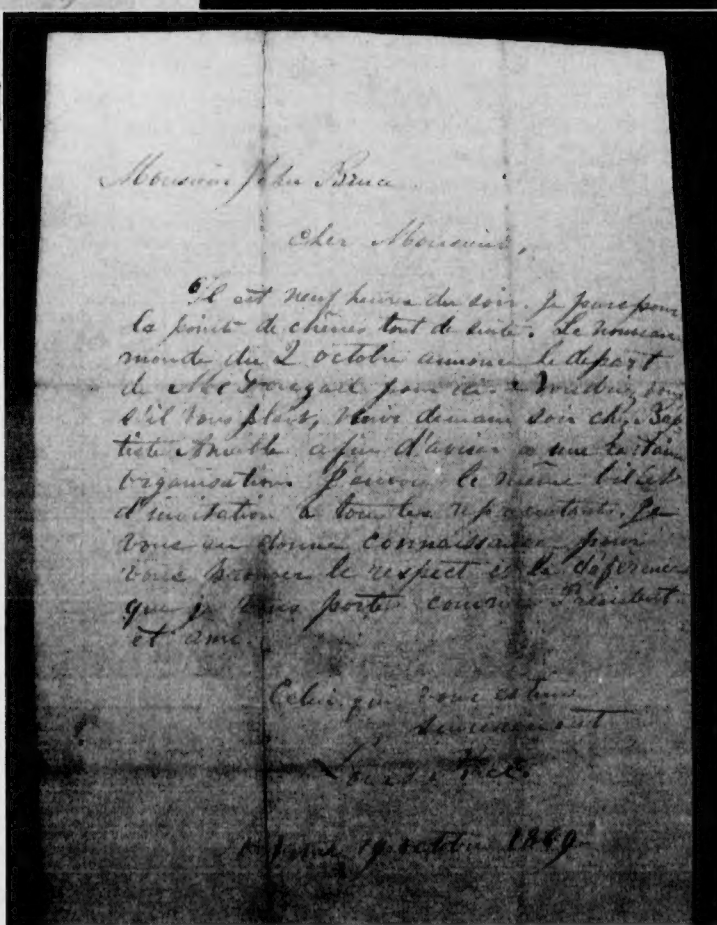 Monsieur John Bruce
Cher Monsieur,
Il est neuf heures du soir. Je pars pour
la pointe de chênes tout de suite. Le nouveau
monde du 2 octobre annonce le depart
de McDougall pour ici. Voudriez vous
s'il vous plait, venir demain soir chez Bap
tiste afin d'aviser a une certaine
organisation. J'envoie le même billet
d'invitation a tous les représentants. Je
vous en donne connaissance pour
vous prouver le respect et la déférence
que je vous porte comme Président
et ami.
Celui qui vous estime
sincèrement
Louis Riel
19 octobre 1869